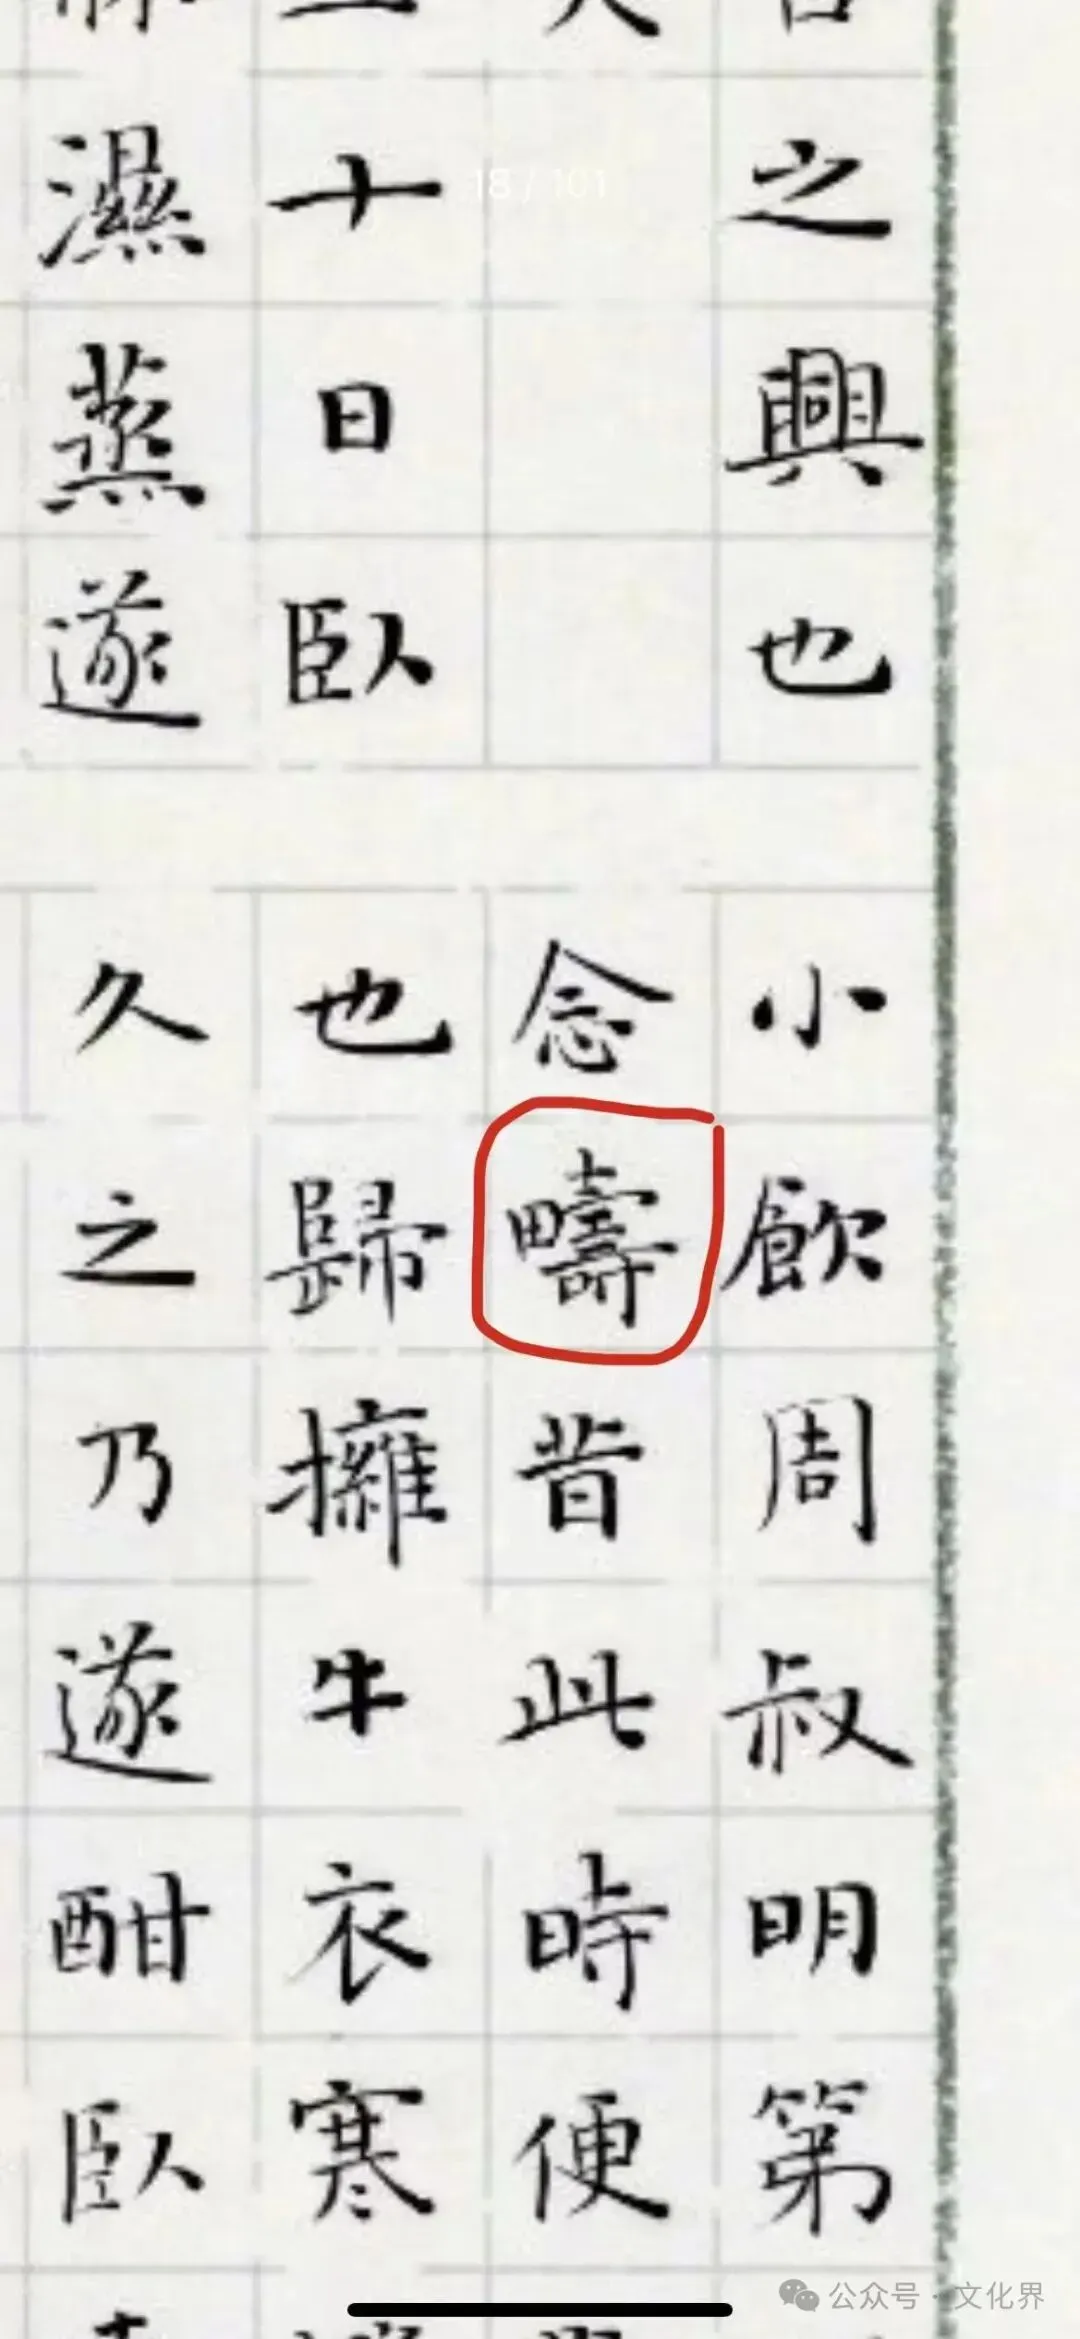 之興也
十日臥
濕蒸遂
小飲周叔明第
念疇昔此時便
也歸擁牛衣寒
久之乃遂酣臥
18 / 101
公众号·文化界